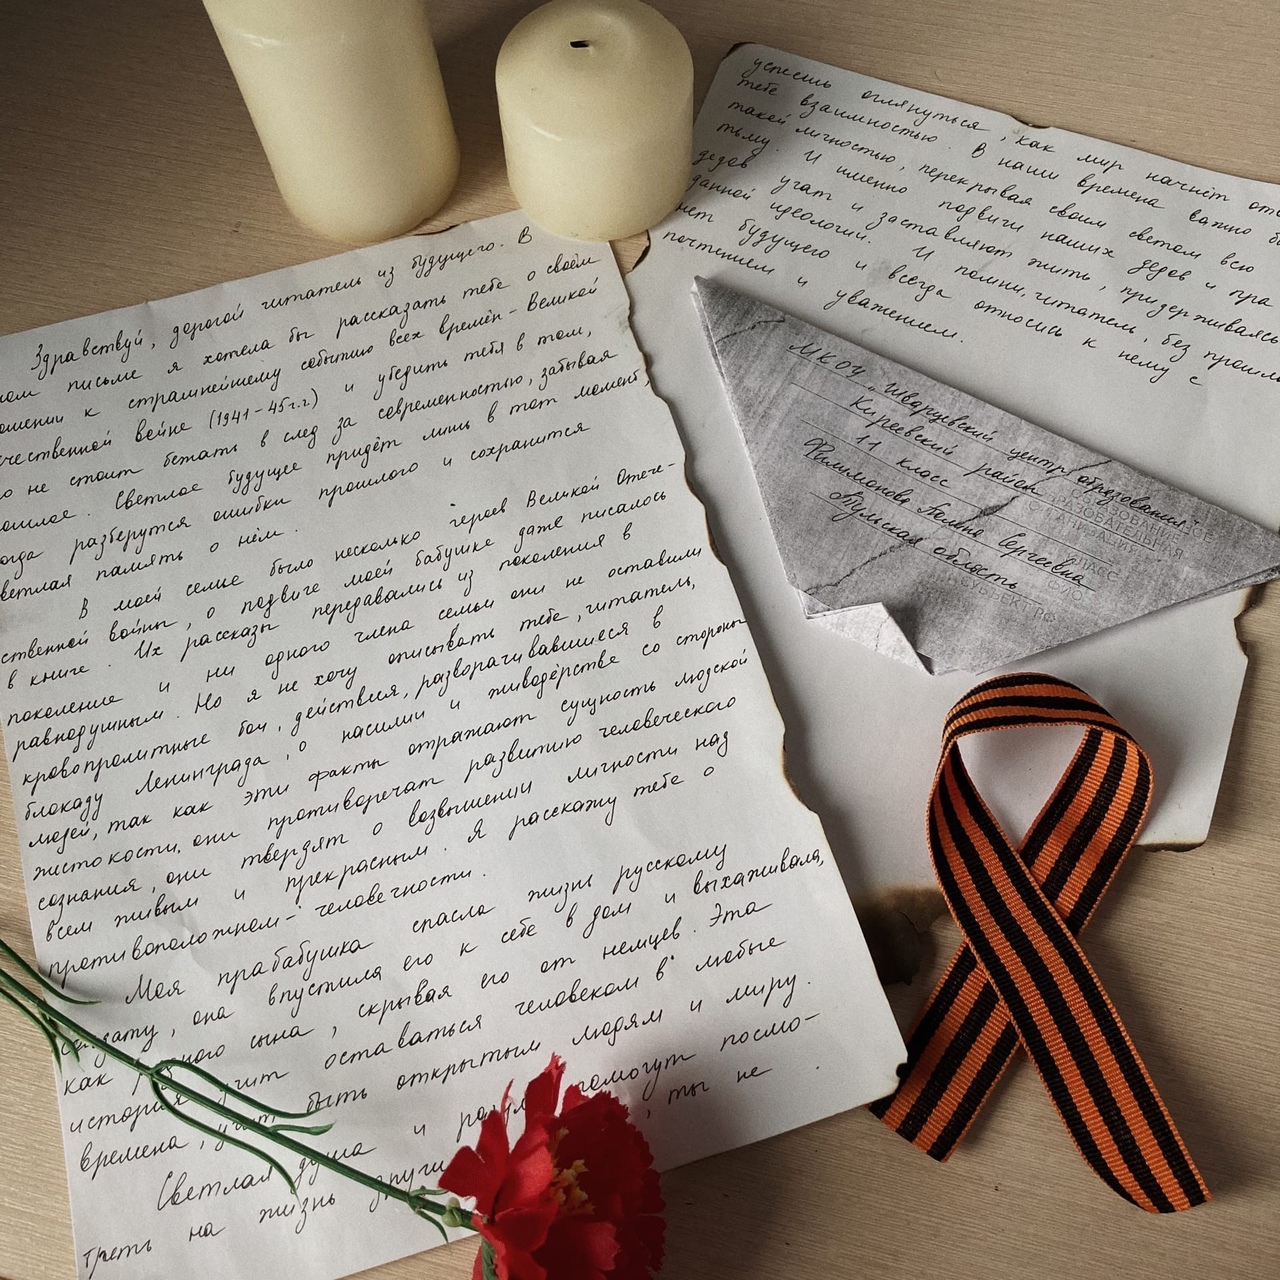 Здравствуй, дорогой читатель из будущего. В
письме я хотела бы рассказать тебе о своём
ошении к страшнейшему событию всех времён - Великой
ечественной войне (1941-45г.г) и убедить тебя в том,
о не стоит бежать в след за современностью, забывая
ошлое. Светлое будущее придёт лишь в тот момент,
огда разберутся ошибки прошлого и сохранится
ветлая память о нём.
В моей семье было несколько героев Великой Отече-
ственной войны, о подвиге моей бабушке даже писалось
в книге. Их рассказы передавались из поколения в
поколение и ни одного члена семьи они не оставили
равнодушным. Но я не хочу описывать тебе, читатель,
кровопролитные бои, действия, разворачивавшиеся в
блокаду Ленинграда, о насилии и живодёрстве со стороны
людей, так как эти факты отражают сущность людской
жестокости, они противоречат развитию человеческого
сознания, они твердят о возвышении личности над
всем живым и прекрасным. Я расскажу тебе о
противоположном - человечности.
Моя прабабушка спасла жизнь русскому
солдату, она впустила его к себе в дом и выхаживала,
как родного сына, скрывая его от немцев. Эта
история учит оставаться человеком в любые
времена, учит быть открытым людям и миру.
Светлая душа и помогут посмо-
треть на жизнь други , ты не
успеешь оглянуться, как мир начнёт отв
тебе взаимностью. В наши времена важно бы
такой личностью, перекрывая своим светом всю
тьму. И именно подвиги наших дедов и пра
дедов учат и заставляют жить, придерживаясь
данной идеологии. И помни, читатель, без прошло
нет будущего и всегда относись к нему с
почтением и уважением.
МКОУ "Шварцевский центр образования"
Киреевский район
11 класс
Филимонова Полина Сергеевна
Тульская область
ОБРАЗОВАТЕЛЬНАЯ
ОРГАНИЗАЦИЯ
КЛАСС
ФИО
СУБЪЕКТ РФ